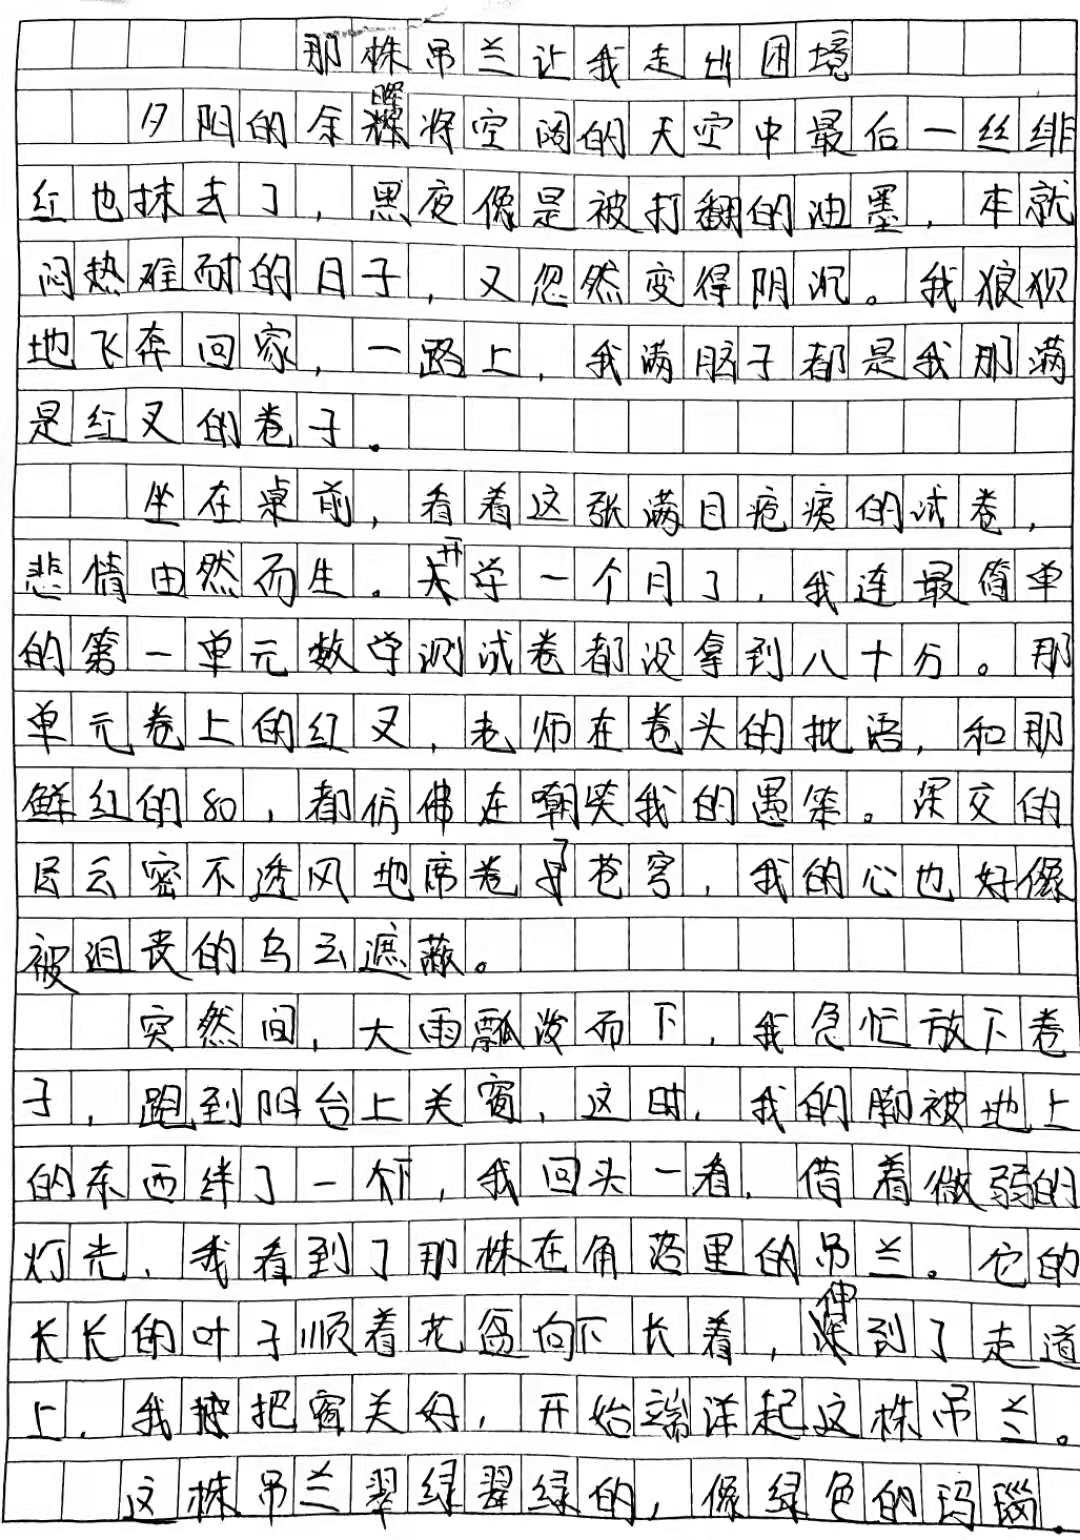 那株吊兰让我走出困境
夕阳的余晖将空阔的天空中最后一丝绯
红也抹去了，黑夜像是被打翻的油墨，本就
闷热难耐的日子，又忽然变得阴沉。我狼狈
地飞奔回家，一路上，我满脑子都是我那满
是红叉的卷子。
坐在桌前，看着这张满目疮痍的试卷，
悲情由然而生。开学一个月了，我连最简单
的第一单元数学测试卷都没拿到八十分。那
单元卷上的红叉，老师在卷头的批语，和那
鲜红的80，都仿佛在嘲笑我的愚笨。深交的
层云密不透风地席卷了苍穹，我的心也好像
被沮丧的乌云遮蔽。
突然间，大雨瓢泼而下，我急忙放下卷
子，跑到阳台上关窗，这时，我的脚被地上
的东西绊了一下，我回头一看，借着微弱的
灯光，我看到了那株在角落里的吊兰。它的
长长的叶子顺着花盆向下长着，伸到了走道
上，我把窗关好，开始端详起这株吊兰。
这株吊兰翠绿翠绿的，像绿色的玛瑙。